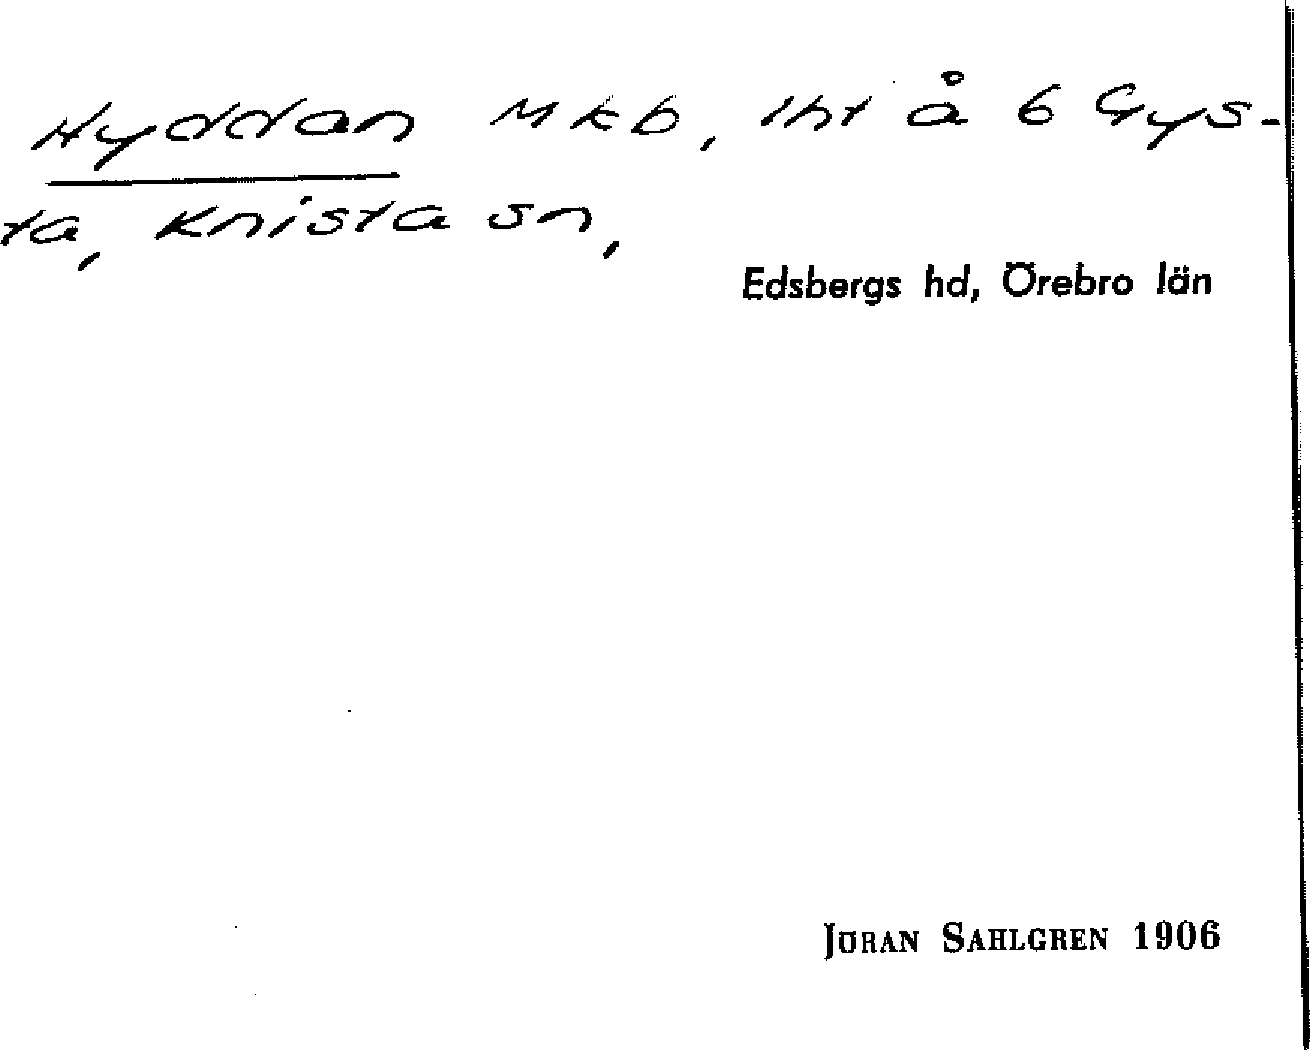 Hyddan Mkb, lht å 6 Gys-
ta, Knista sn,
Edsbergs hd, Örebro län
JÖRAN SAHLGREN 1906